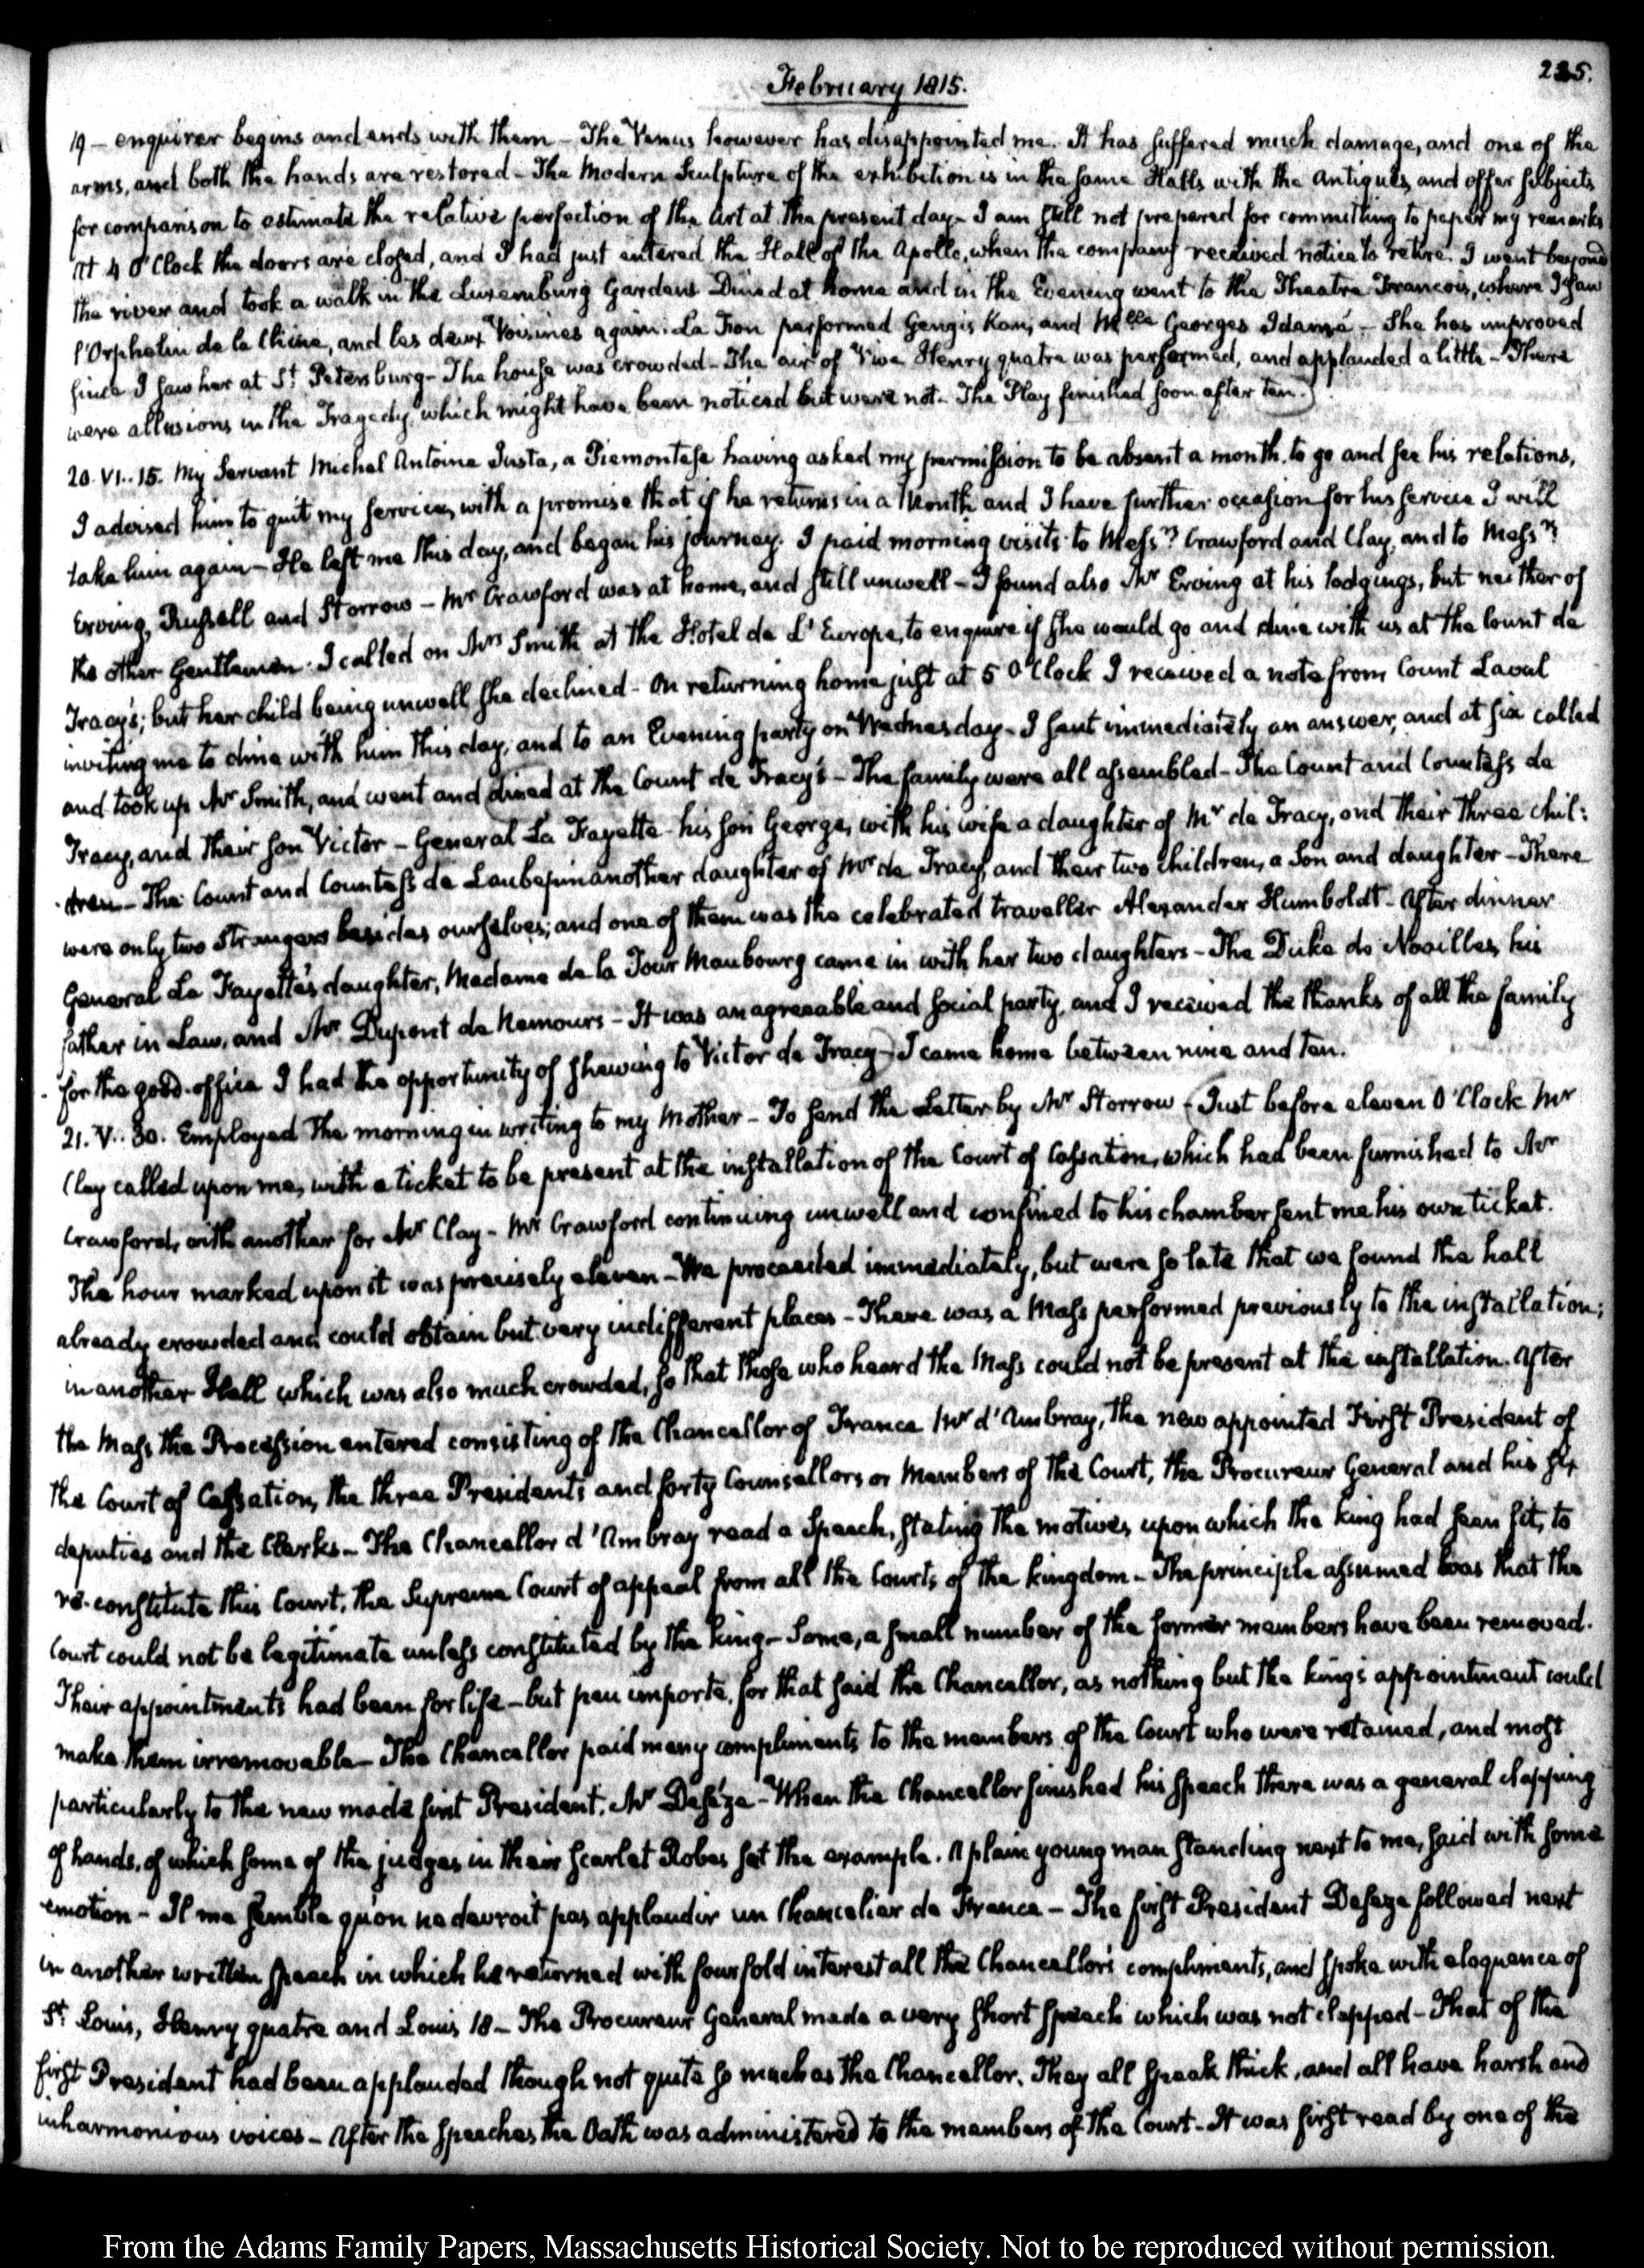 February 1815.
225.
19 – enquirer begins and ends with them – The Venus however has disappointed me. It has suffered much damage, and one of the
arms, and both the hands are restored – The Modern Sculpture of the exhibition is in the same Halls with the Antiques, and offer subjects
for comparison to estimate the relative perfection of the Art at the present day – I am still not prepared for committing to paper my remarks
At 4 O'Clock the doors are closed, and I had just entered the Hall of the Apollo, when the company received notice to retire. I went beyond
the river and took a walk in the Luxemburg Gardens Dined at home and in the Evening went to the Theatre Francois, where I saw
l'Orphelin de la Chine, and les deux Voisines again. La Fon performed Gengis Kan, and Mlle Georges Idamé – She has improved
since I saw her at St Petersburg – The house was crowded – The air of Vive Henry quatre was performed, and applauded a little – There
were allusions in the Tragedy, which might have been noticed but were not – The Play finished soon after ten.
20. VI.. 15. My Servant Michel Antoine Justa, a Piemontese having asked my permission to be absent a month, to go and see his relations,
I advised him to quit my service, with a promise that if he returns in a Month and I have further occasion for his service I will
take him again – He left me this day, and began his journey. I paid morning visits to Messrs Crawford and Clay, and to Messrs
Erving, Russell and Storrow – Mr Crawford was at home, and still unwell – I found also Mr Erving at his lodgings, but neither of
the other Gentlemen. I called on Mrs Smith at the Hotel de L'Europe, to enquire if she would go and dine with us at the Count de
Tracy's; but her child being unwell she declined – On returning home just at 5 O'Clock I received a note from Count Laval
inviting me to dine with him this day, and to an Evening party on Wednesday – I sent immediately an answer, and at six called
and took up Mr Smith, and went and dined at the Count de Tracy's – The family were all assembled – The Count and Countess de
Tracy, and their son Victor – General La Fayette his son George, with his wife a daughter of Mr de Tracy, and their three chil:
dren – The Count and Countess de Laubespin another daughter of Mr de Tracy, and their two children, a Son and daughter – There
were only two Strangers besides ourselves; and one of them was the celebrated traveller Alexander Humboldt – After dinner
General La Fayette's daughter, Madame de la Tour Maubourg came in with her two daughters – The Duke de Noailles, his
father in Law, and Mr Dupont de Nemours – It was an agreeable and social party, and I received the thanks of all the family
for the good office I had the opportunity of shewing to Victor de Tracy – I came home between nine and ten.
21. V.. 30. Employed the morning in writing to my Mother – To send the Letter by Mr Storrow – Just before eleven O'Clock Mr
Clay called upon me, with a ticket to be present at the installation of the Court of Cassation, which had been furnished to Mr
Crawford, with another for Mr Clay – Mr Crawford continuing unwell and confined to his chamber sent me his own ticket.
The hour marked upon it was precisely eleven – We proceeded immediately, but were so late that we found the hall
already crowded and could obtain but very indifferent places – There was a Mass performed previously to the installation;
in another Hall which was also much crowded, so that those who heard the Mass could not be present at the installation. After
the Mass, the Procession entered consisting of the Chancellor of France Mr d'Ambray, the new appointed First President of
the Court of Cassation, the three Presidents and forty Counsellors or Members of the Court, the Procureur General and his six
deputies and the Clerks – The Chancellor d'Ambray read a Speech, stating the motives, upon which the king had seen fit, to
re-constitute this Court, the Supreme Court of appeal from all the Courts of the kingdom – The principle assumed was that the
Court could not be legitimate unless constituted by the king – Some, a small number of the former members have been removed.
Their appointments had been for life – but peu importe, for that said the Chancellor, as nothing but the king's appointment could
make them irremovable – The Chancellor paid many compliments to the members of the Court who were retained, and most
particularly to the new made first President, Mr Deséze – When the Chancellor finished his speech there was a general clapping
of hands, of which some of the judges in their scarlet Robes set the example. A plain young man standing next to me, said with some
emotion – Il me semble qu'on ne devroit pas applaudir un Chancelier de France – The first President Deseze followed next
in another written speech in which he returned with fourfold interest all the Chancellor's compliments, and spoke with eloquence of
St Louis, Henry quatre and Louis 18 – The Procureur General made a very short speech which was not clapped – That of the
first President had been applauded though not quite so much as the Chancellor. They all speak thick, and all have harsh and
inharmonious voices – After the speeches, the Oath was administered to the members of the Court – It was first read by one of the
From the Adams Family Papers, Massachusetts Historical Society. Not to be reproduced without permission.